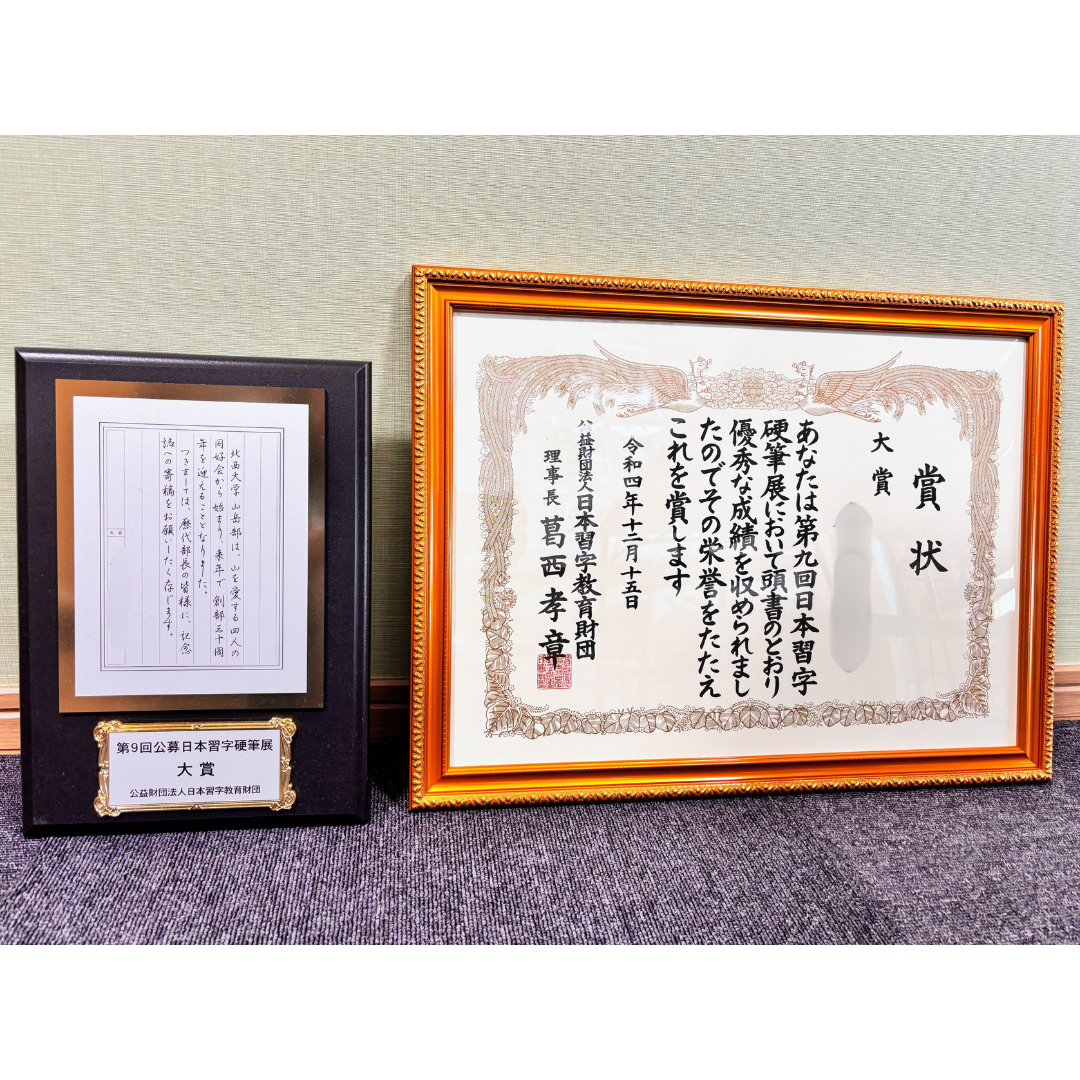 北西大学山岳部は、山を愛する四人の
同好会から始まり、来年で創部三十周
年を迎えることとなりました。
つきましては、歴代部長の皆様に、記念
誌への寄稿をお願いしたく存じます。
第9回公募日本習字硬筆展
大賞
公益財団法人日本習字教育財団
賞状
大賞
あなたは第九回日本習字
硬筆展において頭書のとおり
優秀な成績を収められまし
たのでその栄誉をたたえ
これを賞します
令和四年十二月十五日
公益財団法人日本習字教育財団
理事長 葛西孝章